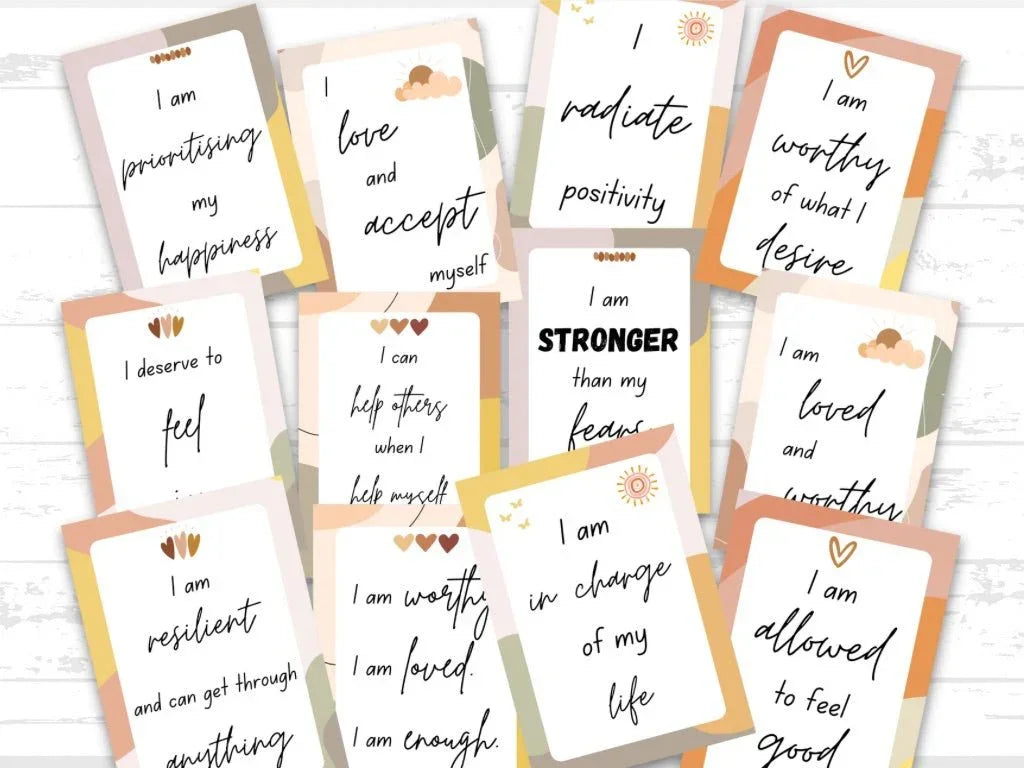 I am
prioritising
my
happiness
I
love
and
accept
myself
I
radiate
positivity
I am
worthy
of what I
desire
I deserve to
feel
I can
help others
when I
help myself
I am
STRONGER
than my
fears
I am
loved
and
worthy
I am
resilient
and can get through
anything
I am worthy
I am loved.
I am enough.
I am
in charge
of my
life
I am
allowed
to feel
good